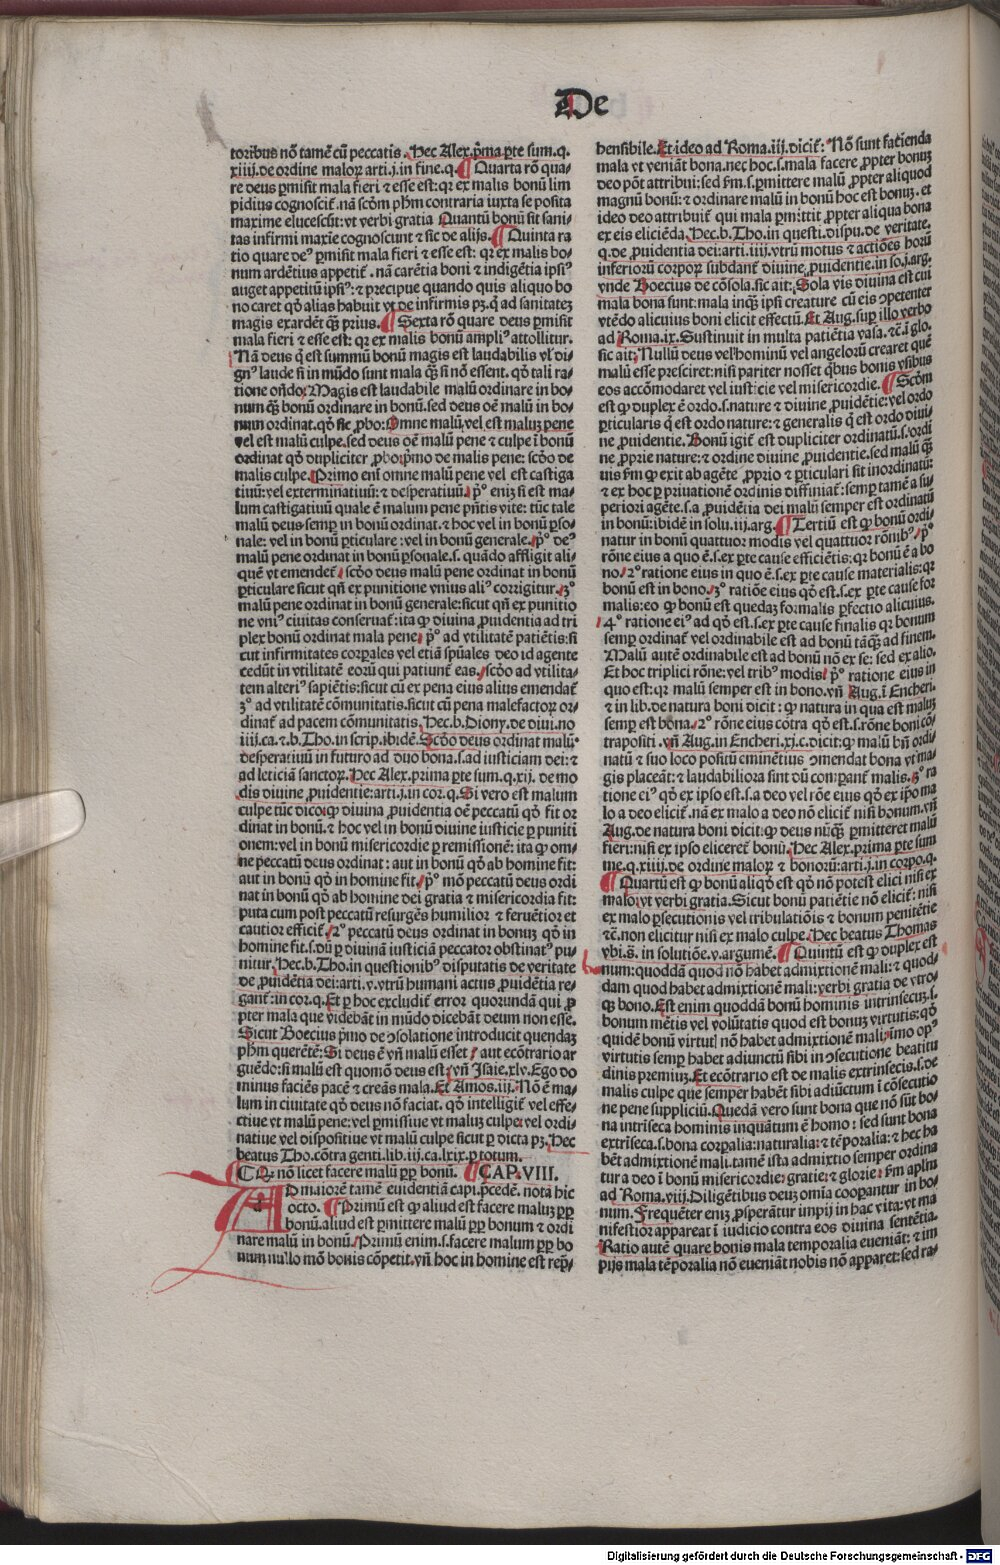 De
toribus nõ tamẽ cũ peccatis. Hec Alex. p̃ma p̱te sum. q.
xiiij. de ordine malorꝝ arti. j. in fine. q. ¶ Quarta rõ qua-
re deus ꝑmisit mala fieri ⁊ esse est: qꝛ ex malis bonũ lim
pidius cognoscit̃. nã scd̃m ph̃m contraria iuxta se posita
maxime elucescũt: vt verbi gratia Quantũ bonũ sit sani-
tas infirmi maxĩe cognoscunt ⁊ sic de alijs. ¶ Quinta ra
tio quare de⁹ ꝑmisit mala fieri ⁊ esse est: qꝛ ex malis bo-
num ardẽtius appetit̃. nã carẽtia boni ⁊ indigẽtia ipsi⁹
auget appetitũ ipsi⁹: ⁊ precipue quando quis aliquo bo
no caret qð alias habuit vt de infirmis pꝫ. q̃ ad sanitatẽ
magis exardẽt q̃ꝫ prius. ¶ Sexta rõ quare deus ꝑmisit
mala fieri ⁊ esse est: qꝛ ex malis bonũ ampli⁹ attollitur.
Nã deus q̃ est summũ bonũ magis est laudabilis vl̃ di-
gn⁹ laude si in mũdo sunt mala q̃ꝫ si nõ essent. qð tali ra-
tione oñdo. Magis est laudabile malũ ordinare in bo-
num q̃ꝫ bonũ ordinare in bonũ. sed deus oẽ malũ in bo-
num ordinat. qð sic ꝓbo: Omne malũ vel est malũ pene
vel est malũ culpe. sed deus oẽ malũ pene ⁊ culpe ĩ bonũ
ordinat qð dupliciter ꝓbo: p̃mo de malis pene: scd̃o de
malis culpe. Primo em̃ omne malũ pene vel est castiga
tiuũ: vel exterminatiuũ: ⁊ desperatiuũ. p̃⁰ enĩ si est ma-
lum castigatiuũ quale ẽ malum pene pñtis vite: tũc tale
malũ deus semꝑ in bonũ ordinat. ⁊ hoc vel in bonũ ꝑso-
nale: vel in bonũ ꝑticulare: vel in bonũ generale. p̃⁰ de⁹
malũ pene ordinat in bonũ ꝑsonale. s. quãdo affligit ali-
quẽ vt emendet̃. scd̃o deus malũ pene ordinat in bonũ
ꝑticulare sicut qñ ex punitione vnius ali⁹ corrigitur. 3⁰
malũ pene ordinat in bonũ generale: sicut qñ ex punitio
ne vni⁹ ciuitas conseruat̃: ita ꝙ diuina ꝓuidentia ad tri
plex bonũ ordinat mala pene. p̃⁰ ad vtilitatẽ patiẽtis: si
cut infirmitates corꝑales vel etiã sp̃uales deo id agente
cedũt in vtilitatẽ eorũ qui patiunt̃ eas. scd̃o ad vtilita-
tem alteri⁹ sapiẽtis: sicut cũ ex pena eius alius emendat̃
3⁰ ad vtilitatẽ cõmunitatis. sicut cũ pena malefactorꝝ or-
dinat̃ ad pacem cõmunitatis. Hec. b. Diony. de diui. no
iiij. ca. ⁊. b. Tho. in scrip. ibidẽ. Scd̃o deus ordinat malũ
desperatiuũ in futuro ad duo bona. s. ad iusticiam dei: ⁊
ad leticiã sanctorꝝ. Hec Alex. prima p̱te sum. q. xij. de mo
dis diuine ꝓuidentie: arti. j. in cor. q. Si vero est malum
culpe tũc dico: ꝙ diuina ꝓuidentia oẽ peccatũ qð fit or
dinat in bonũ. ⁊ hoc vel in bonũ diuine iusticie ꝑ puniti
onem: vel in bonũ misericordie ꝑ remissionẽ: ita ꝙ om-
ne peccatũ deus ordinat: aut in bonũ qð ab homine fit:
aut in bonũ qð in homine fit. p̃⁰ mõ peccatũ deus ordi
nat in bonũ qð ab homine dei gratia ⁊ misericordia fit:
puta cum post peccatũ resurgẽs humilior ⁊ feruẽtior et
cautior efficit̃. 2⁰ peccatũ deus ordinat in bonũ qð in
homine fit. s. dũ ꝑ diuinã iusticiã peccator obstinat⁹ pu
nitur. Hec. b. Tho. in questionib⁹ disputatis de veritate
de ꝓuidẽtia dei: arti. v. vtrũ humani actus ꝓuidẽtia re-
gant̃: in cor. q. Et ꝑ hoc excludit̃ error quorundã qui ꝓ
pter mala que videbãt in mũdo dicebãt deum non esse.
Sicut Boecius p̃mo de ↄsolatione introducit quendaꝫ
ph̃m querẽtẽ: Si deus ẽ vñ malũ esset? aut ecõtrario ar
guẽdo: si malũ est quomõ deus est: vñ Isaie. xlv. Ego do
minus faciẽs pacẽ ⁊ creãs mala. Et Amos. iij. Nõ ẽ ma-
lum in ciuitate qð deus nõ faciat. qð intelligit̃ vel effe-
ctiue vt malũ pene: vel ꝑmissiue vt malũ culpe: vel ordi-
natiue vel dispositiue vt malũ culpe sicut ꝑ dicta pꝫ. Hec
beatus Tho. cõtra genti. lib. iij. ca. lxix. ꝑ totum.
¶ Qꝙ nõ licet facere malũ ꝓp̱ bonũ. ¶ CAP. VIII.
AD maiorẽ tamẽ euidentiã capi. p̃cedẽ. nota hic
octo. ¶ Primũ est ꝙ aliud est facere malũ ꝓp̱
bonũ. aliud est ꝑmittere malũ ꝓp̱ bonum ⁊ ordi
nare malũ in bonũ. Primũ enim. s. facere malum ꝓp̱ bo
num nullo mõ bonis cõpetit. vñ hoc in homine est rep̃-
hensibile. Et ideo ad Roma. iij. dicit̃: Nõ sunt faciẽda
mala vt veniãt bona. nec hoc. s. mala facere ꝓpter bonũ
deo põt attribui: sed s̃m. s. ꝑmittere malũ ꝓpter aliquod
magnũ bonũ: ⁊ ordinare malũ in bonũ hoc est bonũ. et
ideo deo attribuit̃ qui mala ꝑmittit ꝓpter aliqua bona
ex eis eliciẽda. Hec. b. Tho. in questi. dispu. de veritate.
q. de ꝓuidentia dei: arti. iiij. vtrũ motus ⁊ actiões horũ
inferiorũ corporꝝ subdant̃ diuine ꝓuidentie. in so. j. arg.
vnde Boecius de cõsola. sic ait: Sola vis diuina est cui
mala bona sunt: mala inq̃ꝫ ipsi creature cũ eis ↄpetenter
vtẽdo alicuius boni elicit effectũ. Et Aug. suꝑ illo verbo
ad Roma. ix. Sustinuit in multa patiẽtia vasa. ⁊c̃ ĩ glo.
sic ait: Nullũ deus vel hominũ vel angelorũ crearet quẽ
malũ esse presciret: nisi pariter nosset q̃bus bonis vsibus
eos accõmodaret vel iusticie vel misericordie. ¶ Scd̃m
est ꝙ duplex ẽ ordo. s. nature ⁊ diuine ꝓuidẽtie: vel ordo
ꝑticularis q̃ est ordo nature: ⁊ generalis q̃ est ordo diui
ne ꝓuidentie. Bonũ igit̃ est dupliciter ordinatũ. s. ordi
ne ꝓprie nature: ⁊ ordine diuine ꝓuidentie. sed malũ q̃ꝫ
uis s̃m ꝙ exit ab agẽte ꝓprio ⁊ ꝑticulari sit inordinatũ:
⁊ ex hoc ꝑ priuationẽ ordinis diffiniat̃: semꝑ tamẽ a su
periori agẽte. s. a ꝓuidẽtia dei malũ semper est ordinatũ
in bonũ: ibidẽ in solu. iij. arg. ¶ Tertiũ est ꝙ bonũ ordi
natur in bonũ quattuor modis vel quattuor rõnib⁹. p̃⁰
rõne eius a quo ẽ. s. ex ꝑte cause efficiẽtis: qꝛ bonũ ẽ a bo
no. 2⁰ ratione eius in quo ẽ. s. ex ꝑte cause materialis: qꝛ
bonũ est in bono. 3⁰ ratiõe eius qð est. s. ex ꝑte cause for
malis: eo ꝙ bonũ est quedaꝫ formalis ꝑfectio alicuius.
4⁰ ratione ei⁹ ad qð est. s. ex ꝑte cause finalis qꝛ bonum
semꝑ ordinat̃ vel ordinabile est ad bonũ tãq̃ꝫ ad finem.
Malũ autẽ ordinabile est ad bonũ nõ ex se: sed ex alio.
Et hoc triplici rõne: vel trib⁹ modis. p̃⁰ ratione eius in
quo est: qꝛ malũ semper est in bono. vñ Aug. ĩ Encheri.
⁊ in lib. de natura boni dicit: ꝙ natura in qua est malũ
semꝑ est bona. 2⁰ rõne eius cõtra qð est. s. rõne boni cõ-
trapositi. vñ Aug. in Encheri. xj. c. dicit: ꝙ malũ bñ ordi
natũ ⁊ suo loco positũ eminẽtius ↄmendat bona vt ma
gis placeãt: ⁊ laudabiliora sint dũ comparant̃ malis. 3⁰ ra
tione ei⁹ qð ex ipso est. s. a deo vel rõe eius qð ex ip̃o ma
lo a deo elicit̃. nã ex malo a deo nõ elicit̃ nisi bonum. vñ
Aug. de natura boni dicit: ꝙ deus nũq̃ꝫ ꝑmitteret malũ
fieri: nisi ex ipso eliceret̃ bonũ. Hec Alex. prima ꝑte sum
me. q. xiiij. de ordine malorꝝ ⁊ bonorũ: arti. j. in corpo. q.
¶ Quartũ est ꝙ bonũ aliqð est qð nõ potest elici nisi ex
malo: vt verbi gratia. Sicut bonũ patiẽtie nõ elicit̃: nisi
ex malo ꝑsecutionis vel tribulatiõis ⁊ bonum penitẽtie
⁊c̃. non elicitur nisi ex malo culpe. Hec beatus Thomas
vbi. s̃. in solutiõe. v. argumẽ. ¶ Quintũ est ꝙ duplex est
bonum: quoddã quod nõ habet admixtionẽ mali: ⁊ quod-
dam quod habet admixtionẽ mali: verbi gratia de vtro-
q̃ꝫ bono. Est enim quoddã bonũ hominis intrinsecũ. s.
bonum mẽtis vel volũtatis quod est bonũ virtutis: qð
quidẽ bonũ virtut̃ nõ habet admixtionẽ mali: imo op⁹
virtutis semꝑ habet adiunctũ sibi in ↄsecutione beatitu
dinis premiuꝫ. Et ecõtrario est de malis extrinsecis. s. de
malis culpe que semper habẽt sibi adiũctum ĩ cõsecutio
ne pene suppliciũ. Quedã vero sunt bona que nõ sũt bo-
na intriseca hominis inquãtum ẽ homo: sed sunt bona
extriseca. s. bona corꝑalia: naturalia: ⁊ tẽꝑalia: ⁊ hec ha
bẽt admixtionẽ mali. tamẽ ista admixtio semper ordina
tur a deo ĩ bonũ misericordie: gratie: ⁊ glorie. s̃m aplm̃
ad Roma. viij. Diligẽtibus deuꝫ omĩa cooꝑantur in bo-
num. Frequẽter enim ꝓsperãtur impij in hac vita: vt ma
nifestior appareat ĩ iudicio contra eos diuina sentẽtia.
Ratio autẽ quare bonis mala temporalia eueniãt: ⁊ im
pijs mala tẽporalia nõ eueniãt nobis nõ apparet: sed ra-
Digitalisierung gefördert durch die Deutsche Forschungsgemeinschaft - DFG